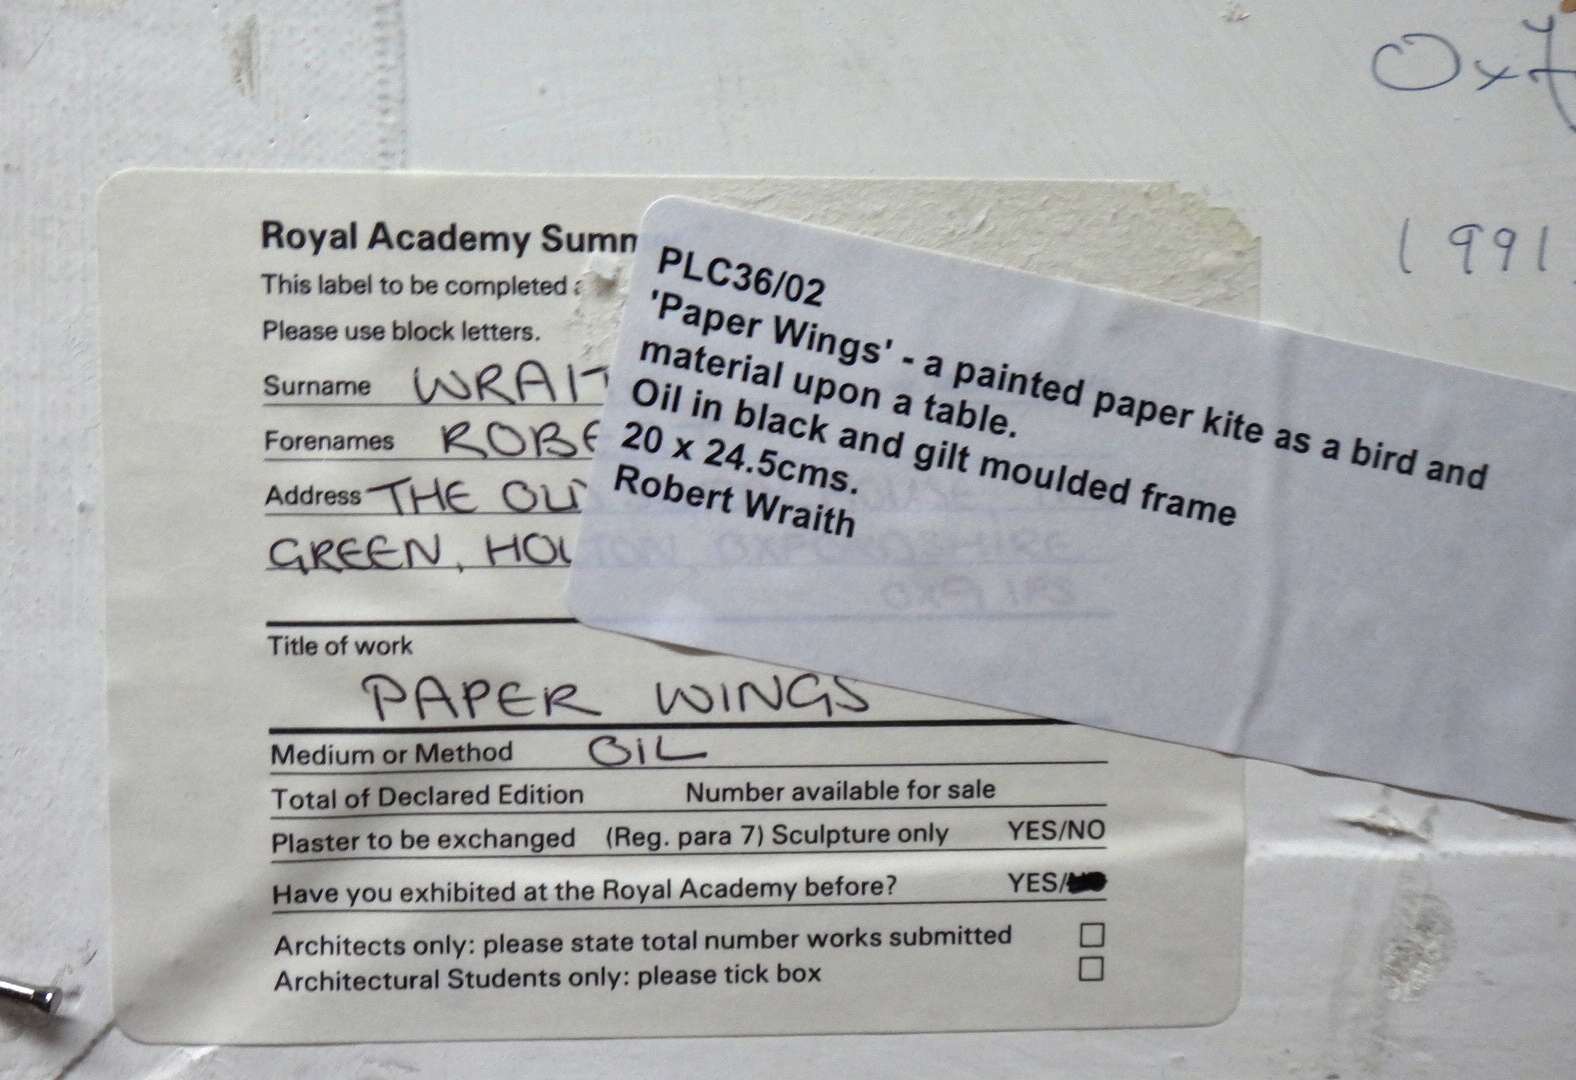 Royal Academy Summ
This label to be completed
Please use block letters.
Surname WRAIT
Forenames ROBE
Address THE OL
GREEN, HOL TON, OXFORDSHIRE
OX9 1PS
Title of work
PAPER WINGS
Medium or Method OIL
Total of Declared Edition Number available for sale
Plaster to be exchanged (Reg. para 7) Sculpture only YES/NO
Have you exhibited at the Royal Academy before? YES/
Architects only: please state total number works submitted
Architectural Students only: please tick box
PLC36/02
'Paper Wings' - a painted paper kite as a bird and
material upon a table.
Oil in black and gilt moulded frame
20 x 24.5cms.
Robert Wraith
1991